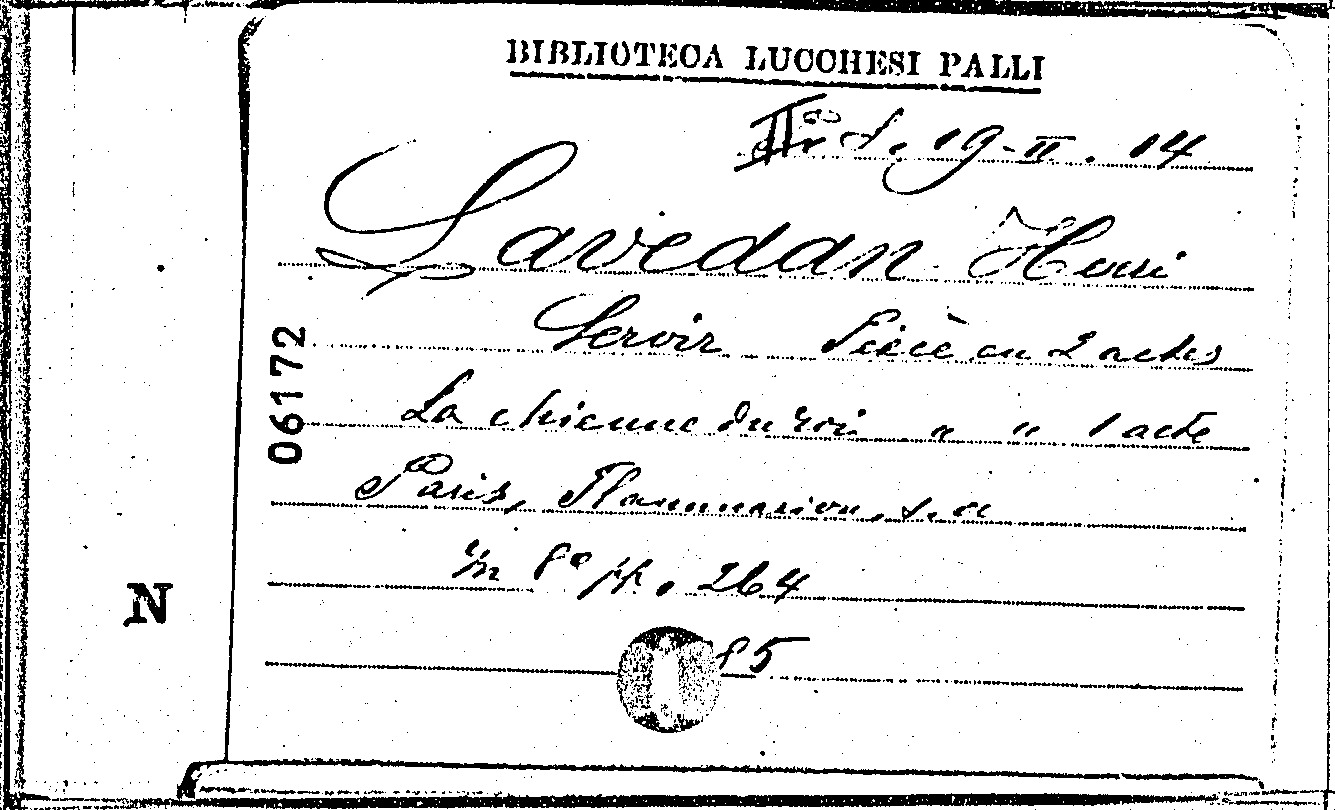 BIBLIOTECA LUCCHESI PALLI
19-II. 14
Lavedan Henri
Servir Pièce en 2 actes
La chienne du roi " " 1 acte
Paris, Flammarion, s. a
in 8º pp. 264
85
06172
N